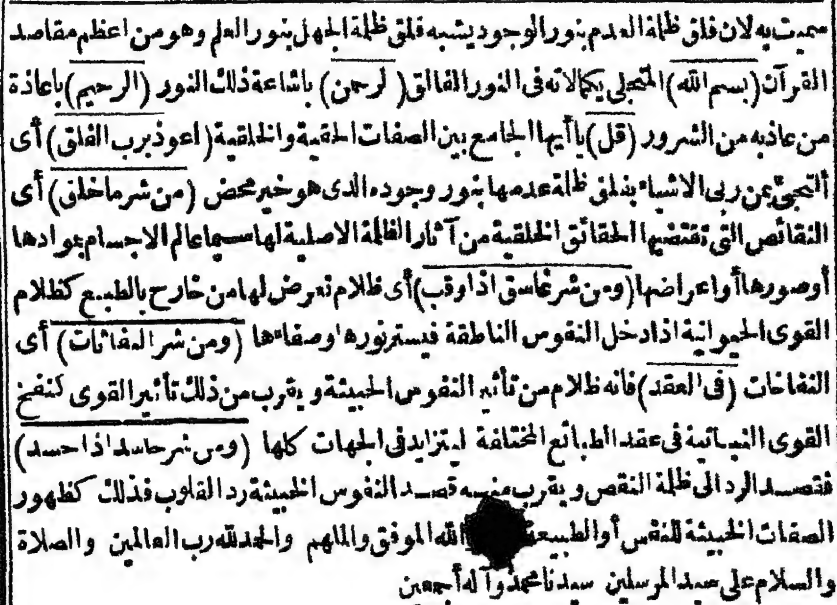 سميت به لان فلق ظلمة العدم بنور الوجود يشبه فلق ظلمة الجهل بنور العلم وهو من اعظم مقاصد
القرآن (بسم الله) المتجلى بكمالاته فى النور الفالق (لرحمن) باشاعة ذلك النور (الرحيم) باعاذة
من عاذبه من الشرور (قل) ياأيها الجامع بين الصفات الحقية والخلقية (اعوذ برب الفلق) أى
ألتجئ بمن ربى الاشياء بفلق ظلمة عدمها بنور وجوده الذى هو خير محض (من شر ما خلق) أى
النقائص التى تقتضيها الحقائق الخلقية من آثار الظلمة الاصلية لها سيما عالم الاجسام بموادها
أو صورها أو اعراضها (ومن شر غاسق اذا وقب) أى ظلام تعرض لها من خارج بالطبع كظلام
القوى الحيوانية اذا دخل النفوس الناطقة فيستر نورها وصفاءها (ومن شر النفاثات) أى
النفاخات (فى العقد) فانه ظلام من تأثير النفوس الخبيثة ويقرب من ذلك تأثير القوى كنفخ
القوى النباتية فى عقد الطبائع المختلفة ليتزايد فى الجهات كلها (ومن شر حاسد اذا حسد)
فقصد الرد الى ظلمة النقص ويقرب منه قصد النفوس الخبيثة رد القلوب فذلك كظهور
الصفات الخبيثة للنفس أو الطبيعة الله الموفق والملهم والحمد لله رب العالمين والصلاة
والسلام على سيد المرسلين سيدنا محمد وآله أجمعين